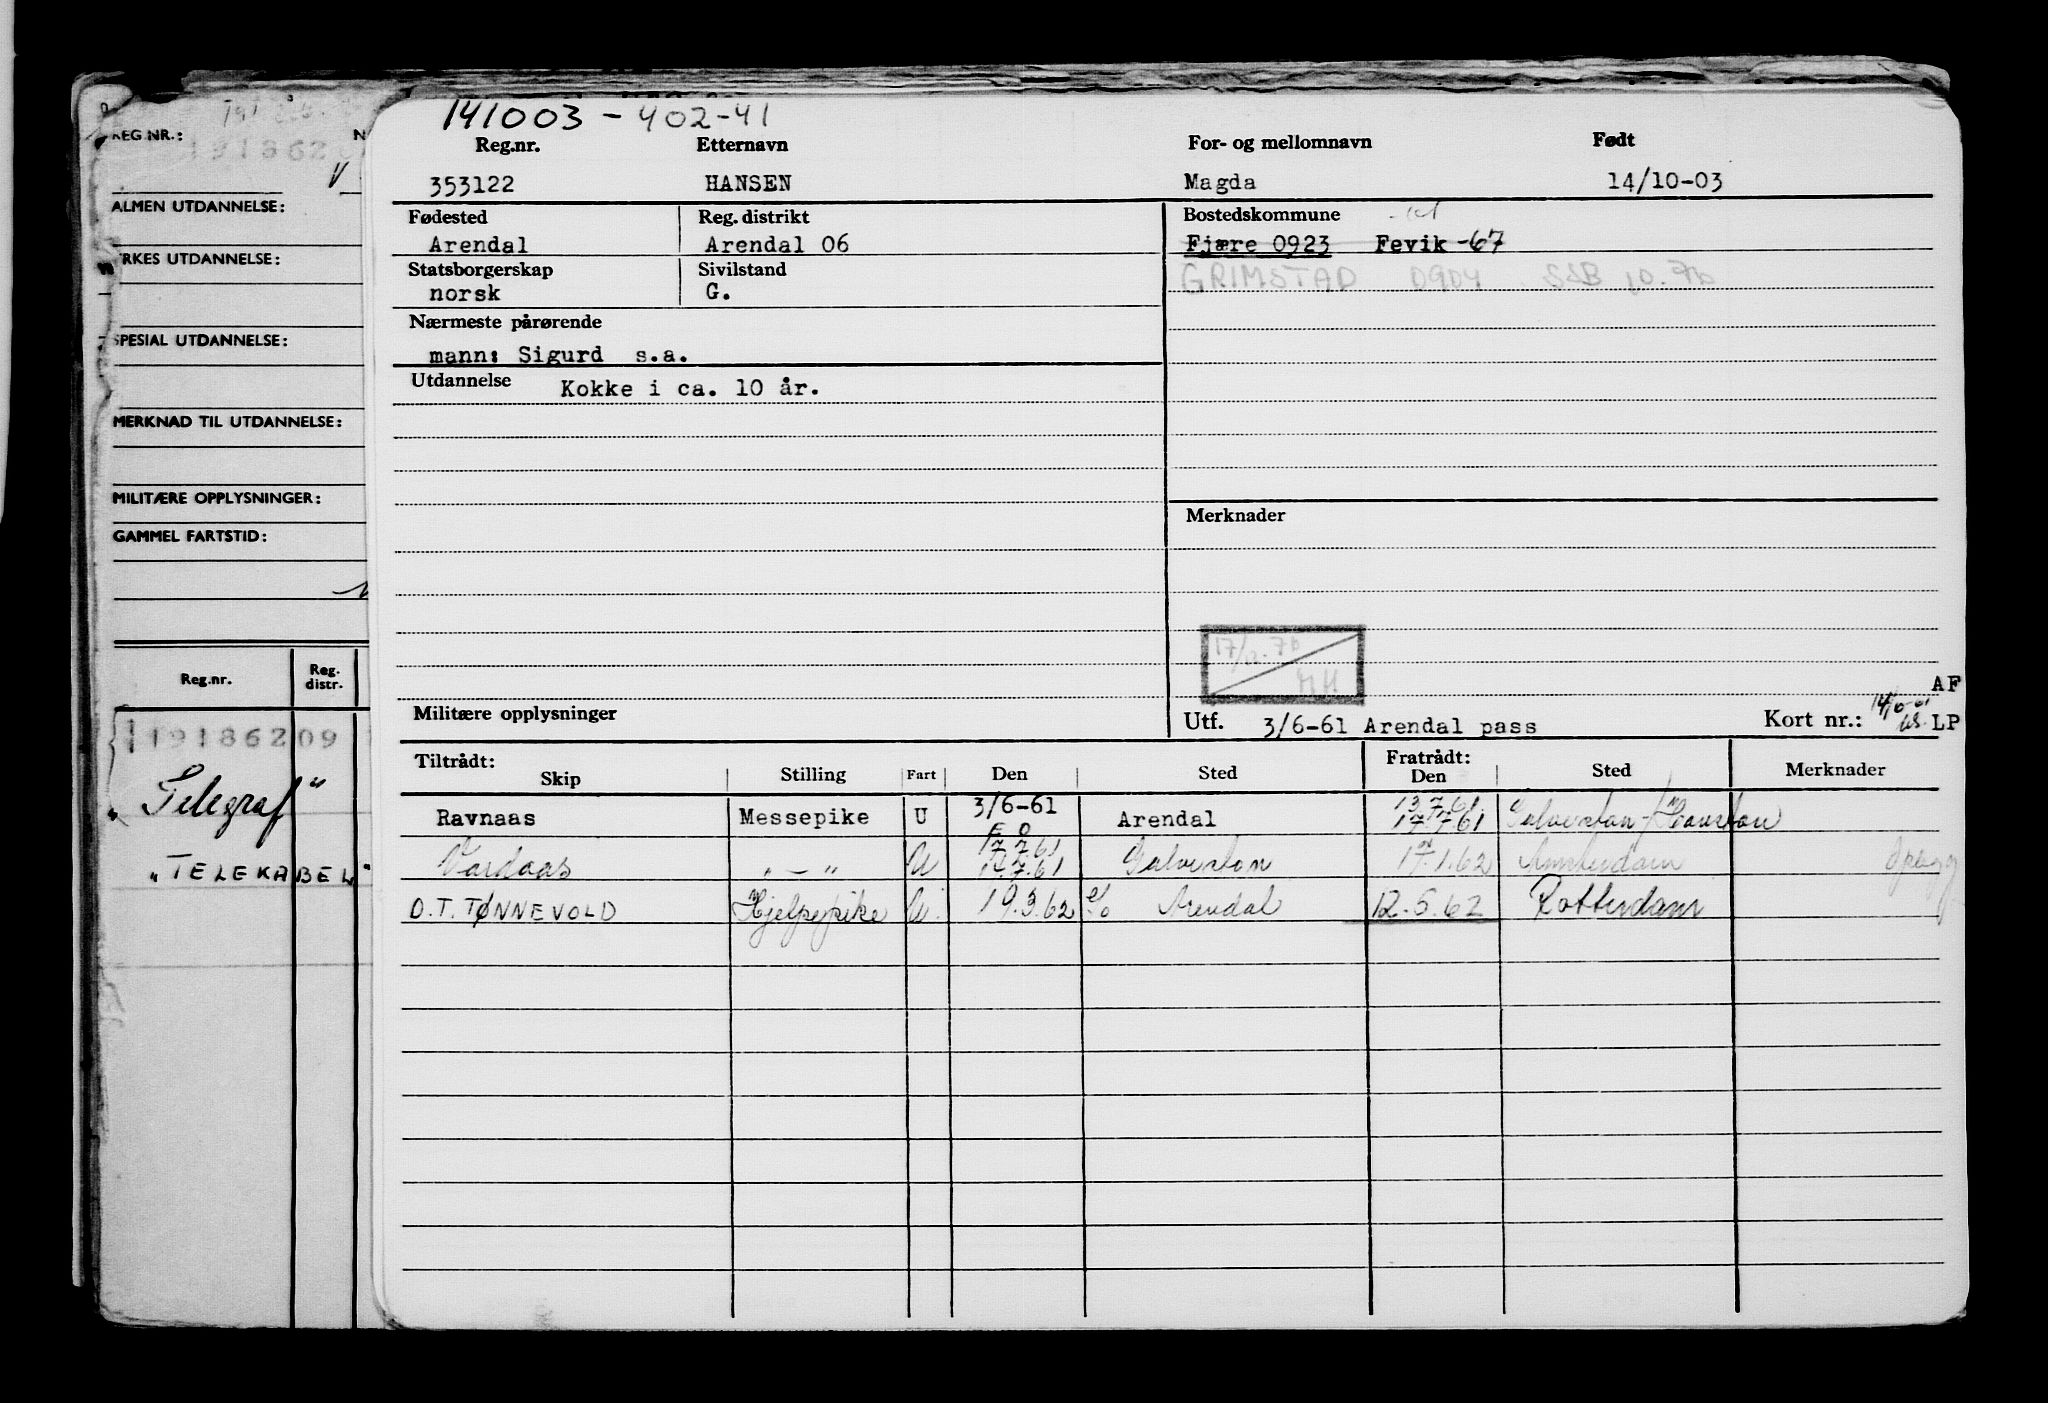 141003-402-41
Reg.nr. Etternavn For- og mellomnavn Født
353122 HANSEN Magda 14/10-03
Fødested Reg. distrikt Bostedskommune
Arendal Arendal 06 Fjære 0923 Fevik -67
Statsborgerskap Sivilstand
norsk G. GRIMSTAD 0904 SSB 10.76
Nærmeste pårørende
mann: Sigurd s.a.
Utdannelse Kokke i ca. 10 år.
Merknader
17/12.76
MH
AF
Militære opplysninger Utf. 3/6-61 Arendal pass Kort nr.: LP
Tiltrådt: Fratrådt:
Skip Stilling Fart Den Sted Den Sted Merknader
Ravnaas Messepike U 3/6-61 Arendal 13.7.61 17.7.61 Galveston-Houston
Vardaas "-" U 17.7.61 Galveston 17.1.62 Amsterdam Opl
O.T. TØNNEVOLD Hjelpepike U 19.3.62 Arendal 12.5.62 Rotterdam
REG NR.:
191862
ALMEN UTDANNELSE:
YRKES UTDANNELSE:
SPESIAL UTDANNELSE:
MERKNAD TIL UTDANNELSE:
MILITÆRE OPPLYSNINGER:
GAMMEL FARTSTID:
Reg.nr. Reg. distr.
191862 09
"Telegraf"
"TELEKABEL"